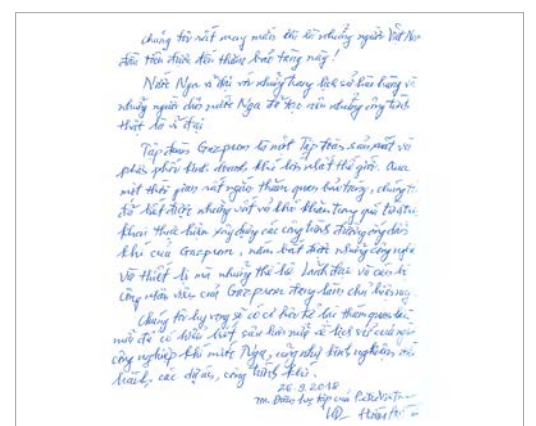 Chúng tôi rất may mắn khi là những người Việt Nam
đầu tiên được đến thăm bảo tàng này!
Nước Nga vĩ đại với những trang lịch sử hào hùng và
những người dân nước Nga đã tạo nên những công trình
thật là vĩ đại
Tập đoàn Gazprom là một Tập đoàn sản xuất và
phân phối kinh doanh khí lớn nhất thế giới. Qua
một thời gian rất ngắn thăm quan bảo tàng, chúng tôi
đã biết được những vất vả khó khăn trong quá trình
khai thực hiện xây dựng các công trình đường ống dẫn
khí của Gazprom, nắm bắt được những công nghệ
và thiết bị mà những thế hệ Lãnh đạo và cán bộ
công nhân viên của Gazprom đang làm chủ hiện nay.
Chúng tôi hy vọng sẽ có cơ hội để thăm quan
để có hiểu biết sâu hơn nữa về lịch sử của ngành
công nghiệp khí nước Nga, cũng như kinh nghiệm
hành, các dự án, công trình khí.
26.9.2018
TM. Đoàn học tập của PetroVietnam